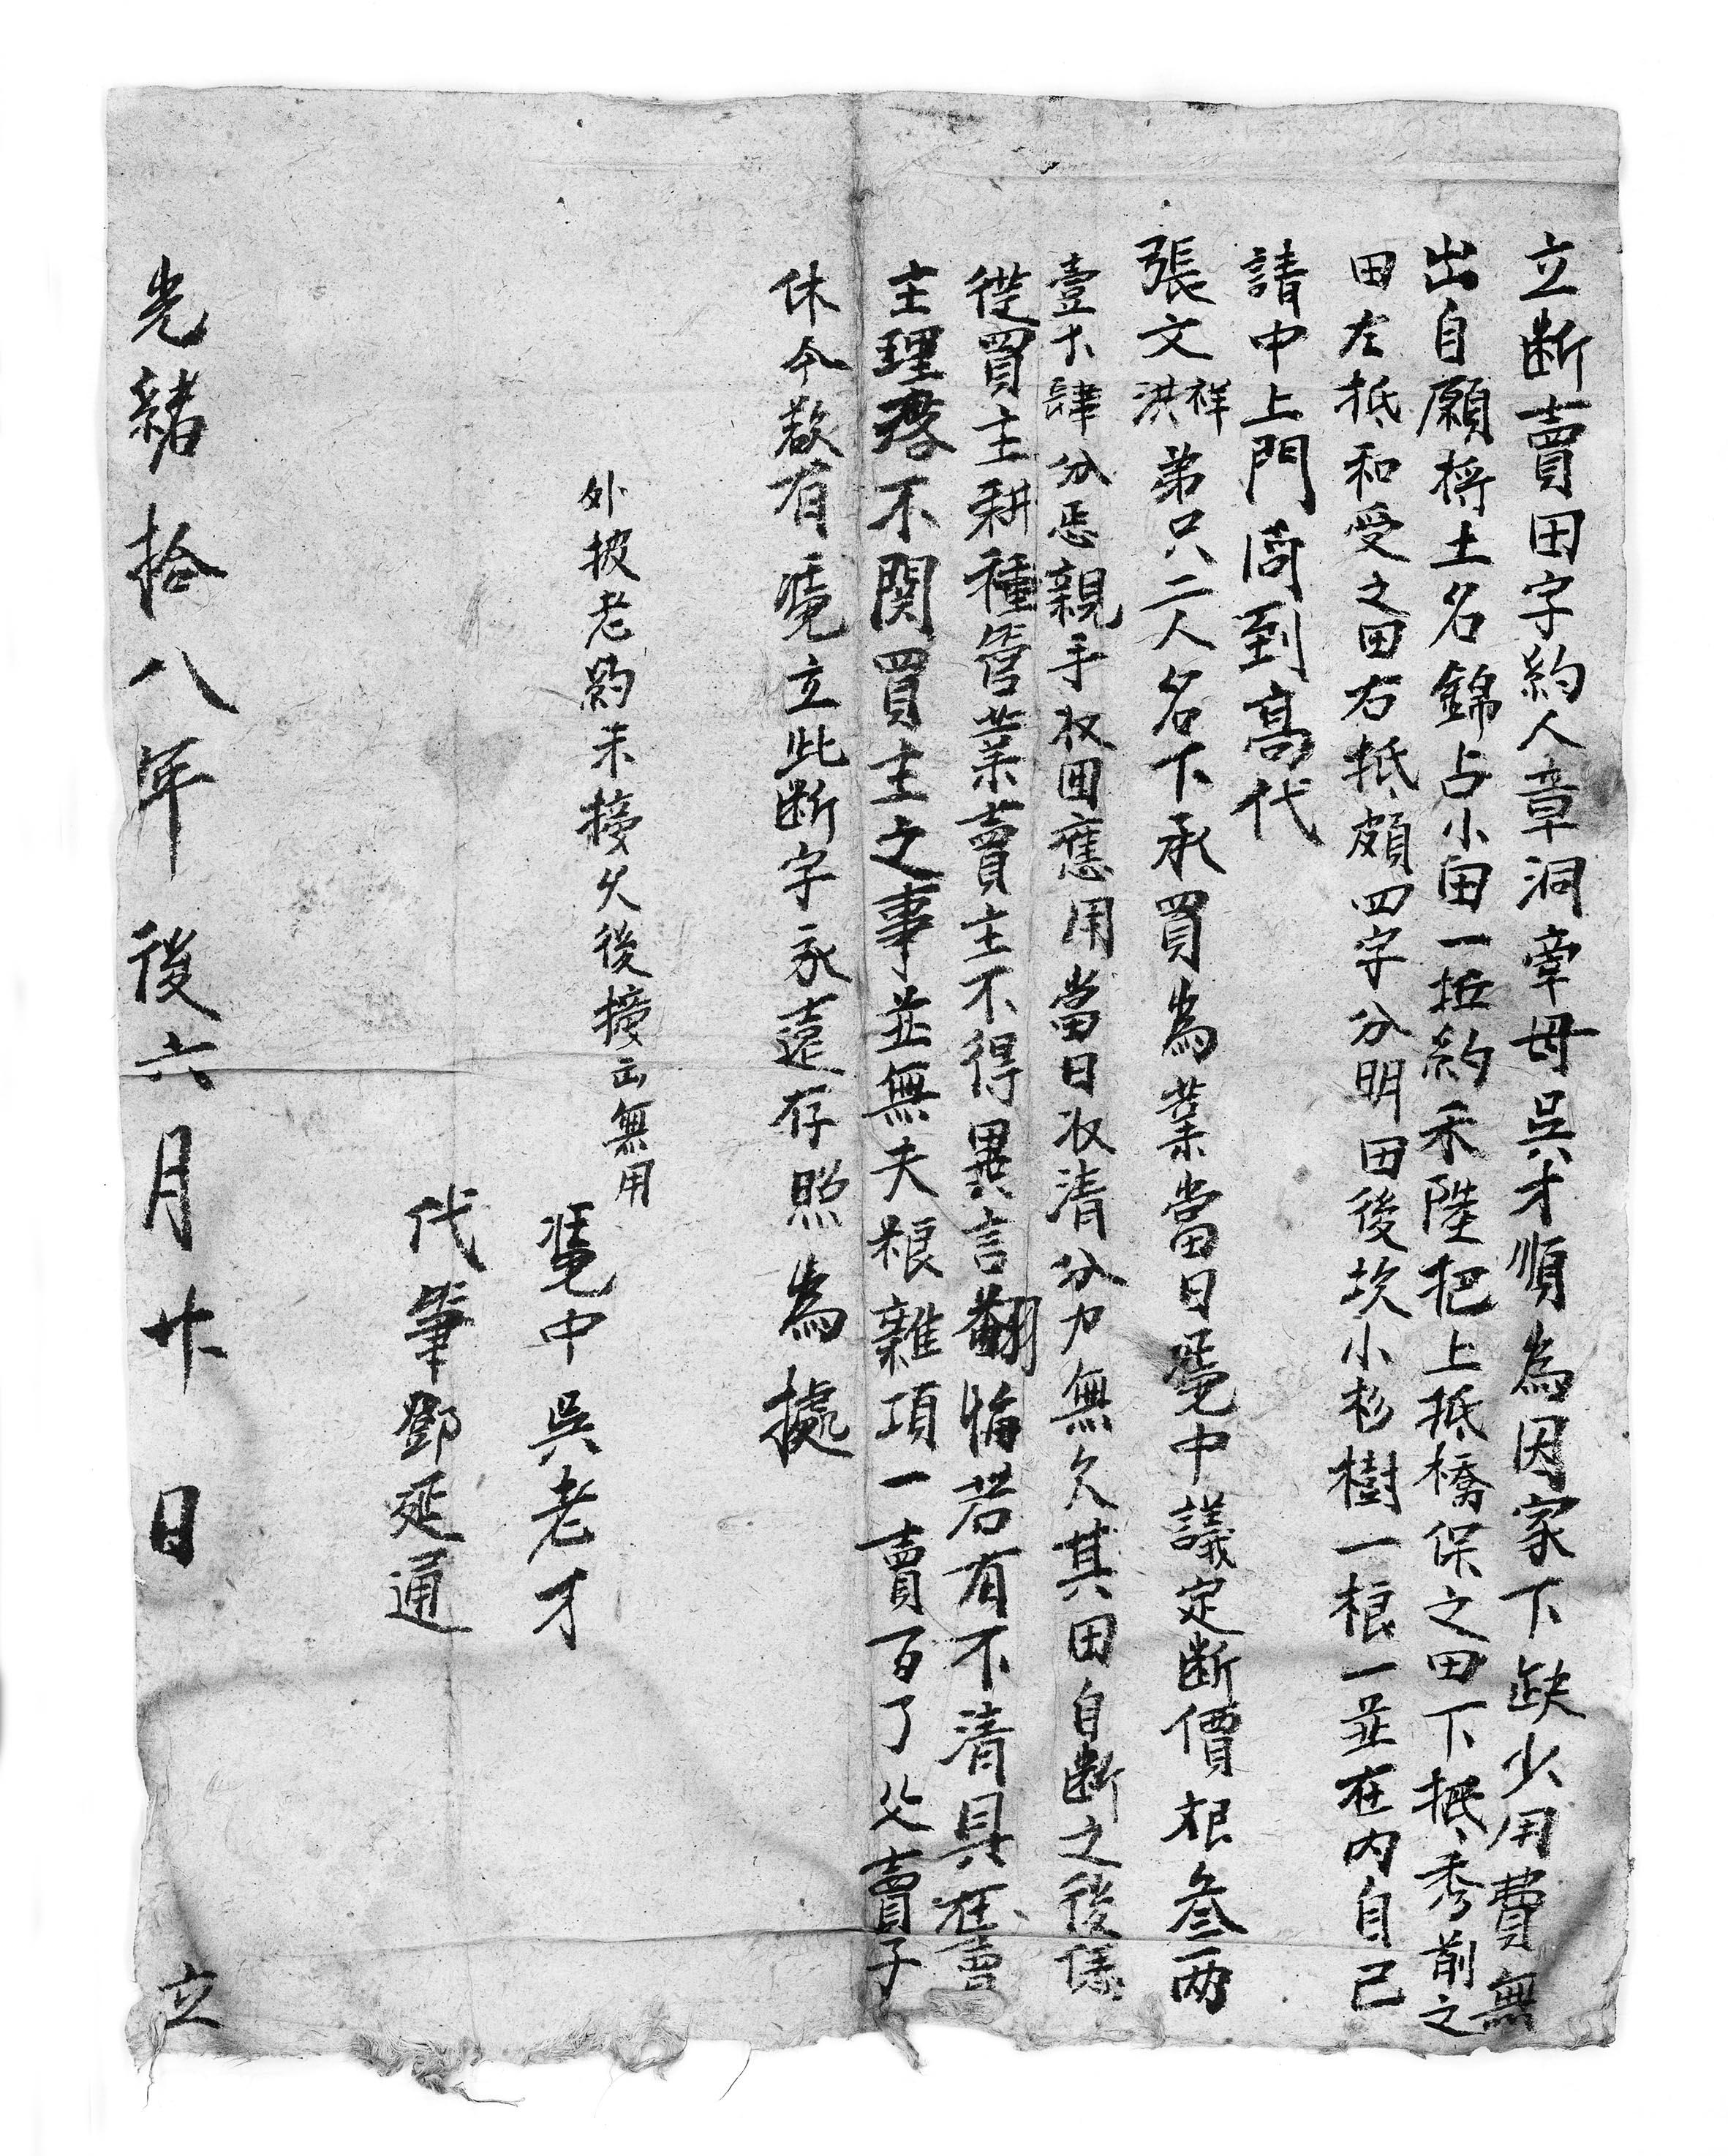 立断賣田字約人章洞寕母吳才順為因家下缺少用費無
出自願将土名錦占小田一坵約禾陸把上抵橋保之田下抵秀前之
田左抵和受之田右抵頗四字分明田後坎小杉樹一根一並在内自己
請中上門問到高代
張文祥洪弟只二人名下承買為業當日凴中議定断價根叁两
壹十肆分恁親手收囬應用當日收清分力無欠其田自断之後
從買主耕種管業賣主不得異言翻悔若有不清具在賣
主理落不関買主之事並無夫粮雜項一賣百了父賣子
休今欲有凴立此断字永遠存照為據
外披老約未接久後接出無用
凴中吳老才
代筆鄧延通
光緒拾八年後六月廿日立